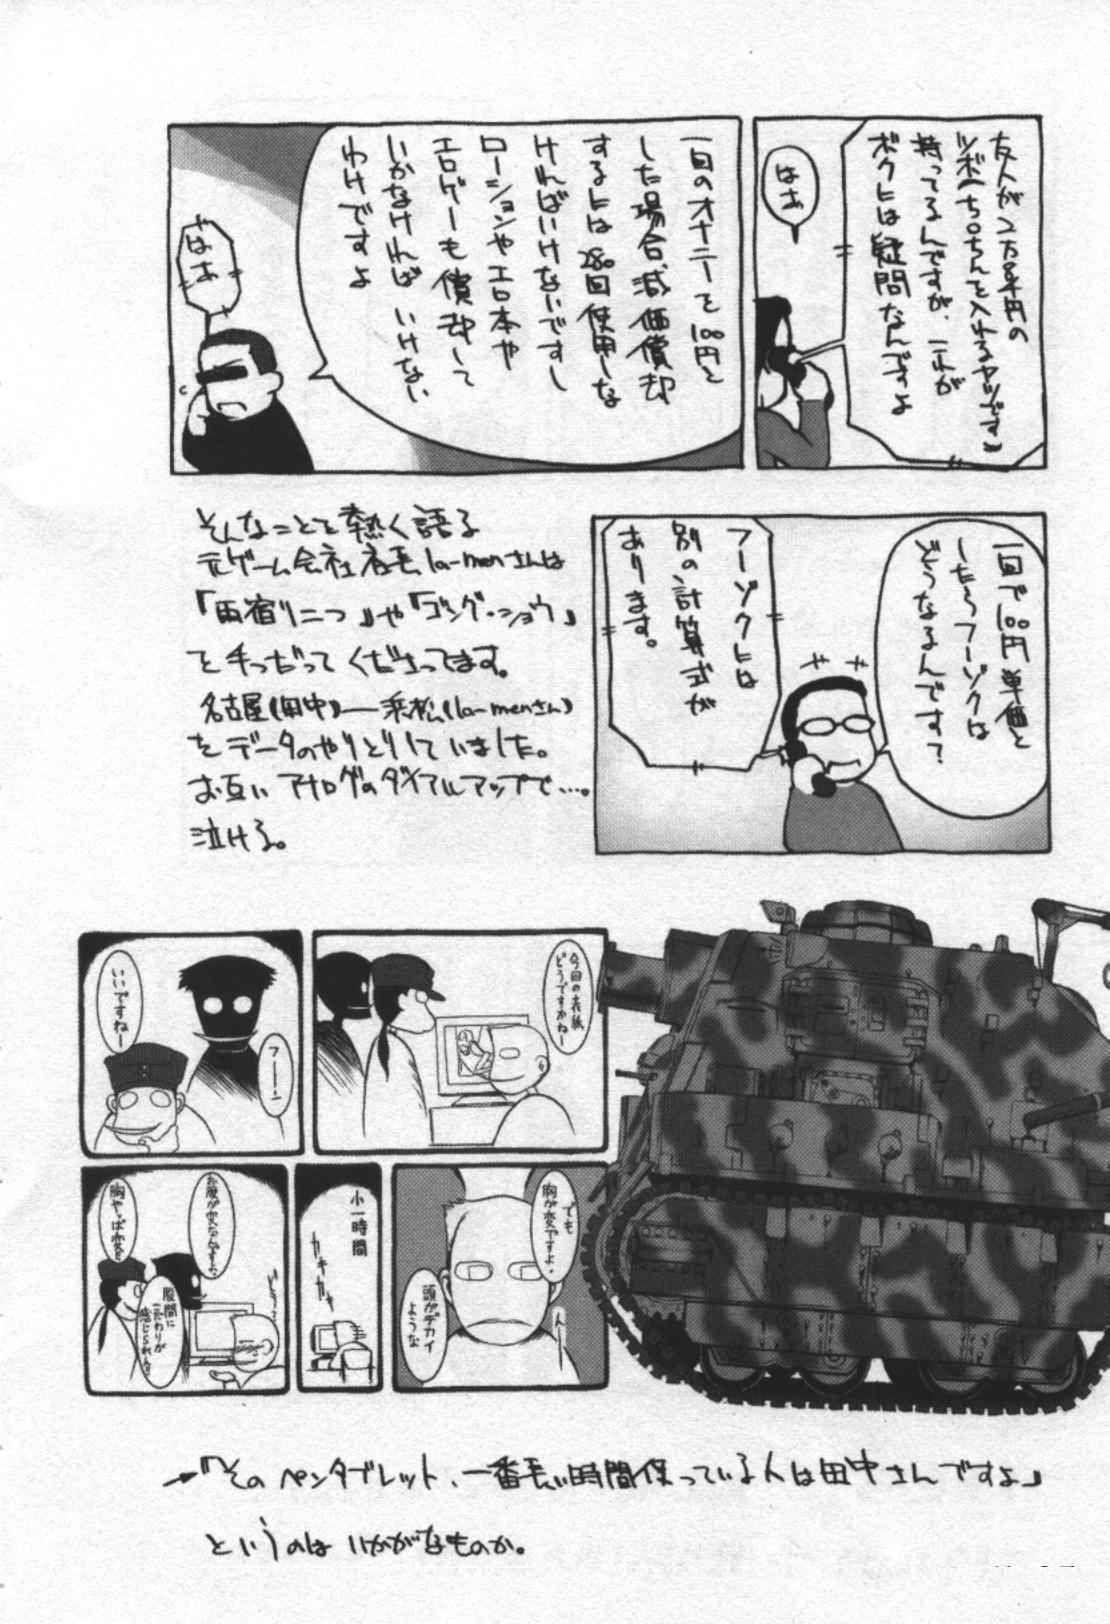 友人が2万8千円の
ツボ(ち○ちんを入れるヤツです)
持ってるんですが、ソレが
ボクには疑問なんですよ
はあ
一回のオナニーを100円と
した場合減価償却
するには280回使用しな
ければいけないですし
ローションやエロ本や
エロゲーも償却して
いかなければ いけない
わけですよ
はあ
一回で100円単価と
したらフーゾクは
どうなるんです?
フーゾクには
別の計算式が
あります。
そんなことを熱く語る
元ゲーム会社社長la-menさんは
『雨宿り二つ』や『ゴング・ショウ』
を手つだってくださってます。
名古屋(田中)―浜松(la-menさん)
をデータのやりとりしていました。
お互いアナログのダイアルアップで…。
泣ける。
今回の表紙
どうですかねー
いいですねー
フーーン
でも
胸が変ですよ。
頭がデカイ
ような
んー
小一時間
カキカキ
お腹が変なんですよ。
胸やっぱ変だ
股間に
こだわりが
感じられん!!
→「そのペンタブレット、一番長い時間使っている人は田中さんですよ」
というのは いかがなものか。